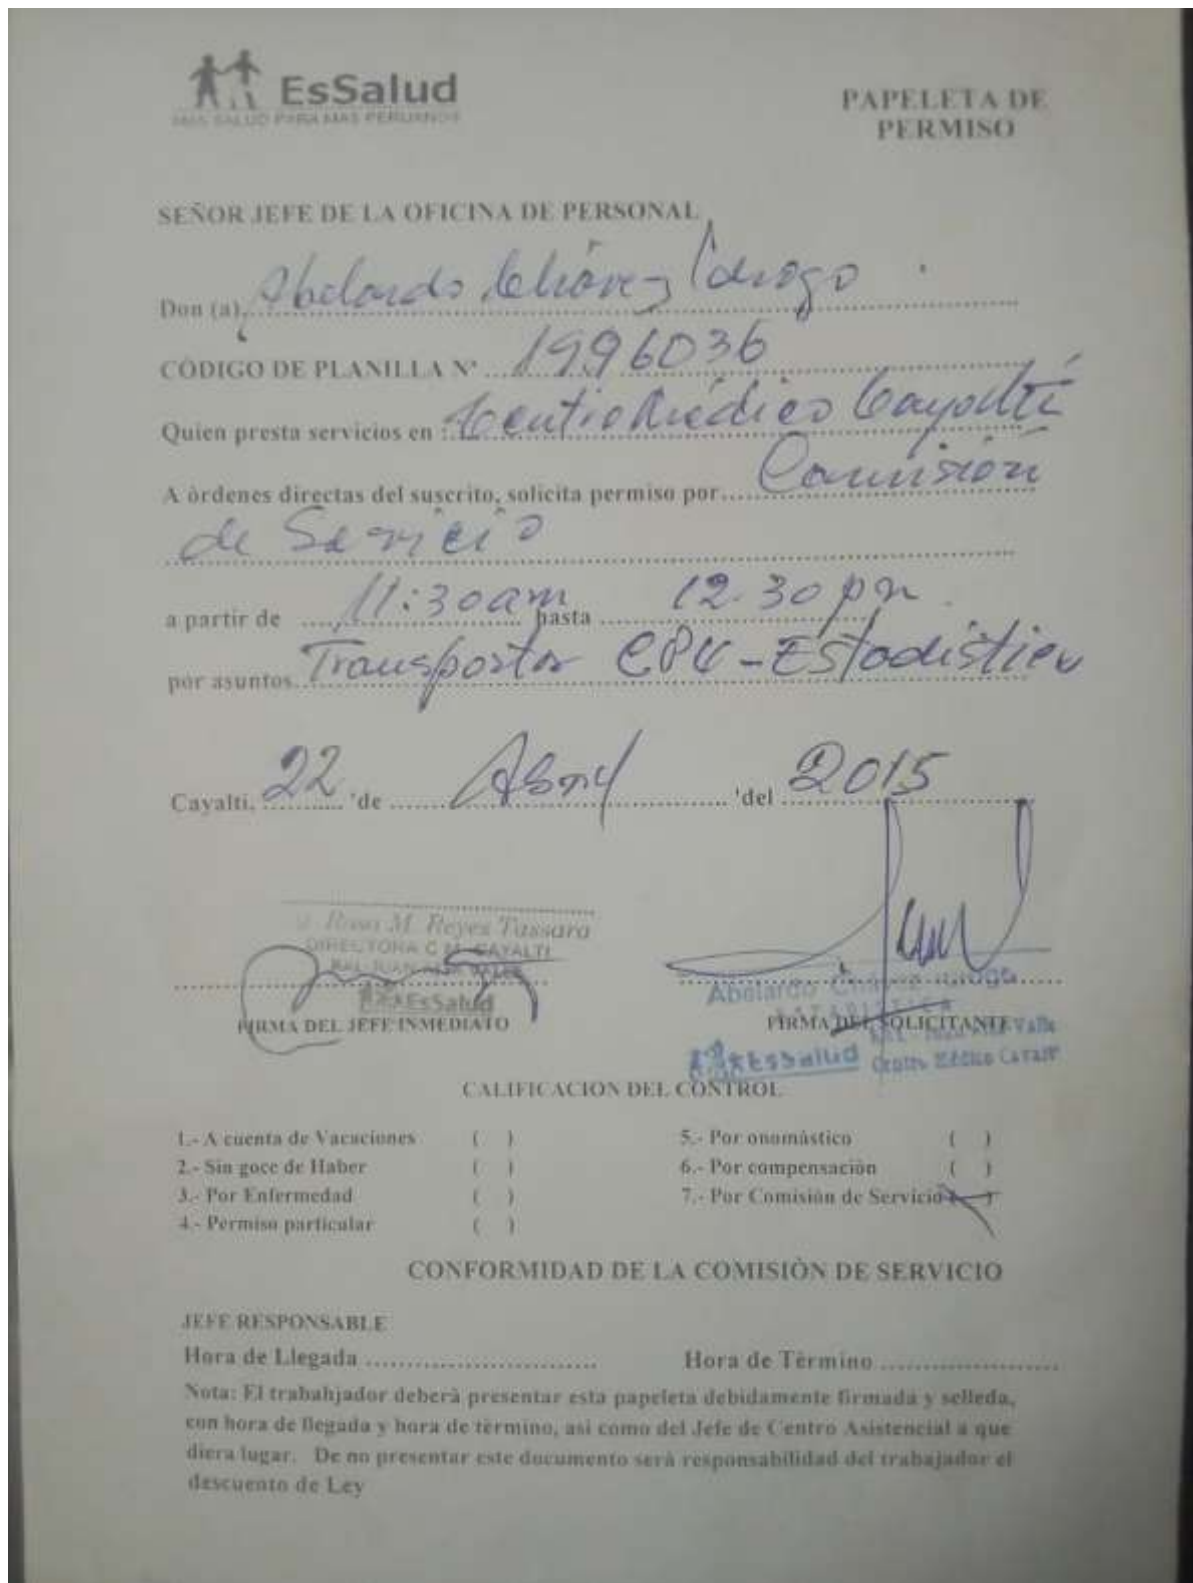 EsSalud
MÁS SALUD PARA MÁS PERUANOS
PAPELETA DE
PERMISO
SEÑOR JEFE DE LA OFICINA DE PERSONAL
Don (a). Abelardo Chávez
CÓDIGO DE PLANILLA Nº 1996036
Quien presta servicios en : Centro Médico Cayaltí
A òrdenes directas del suscrito, solicita permiso por Comisión
de Servicio
a partir de 11:30am hasta 12.30 pm
por asuntos. Transportar CPU - Estadistica
Cayaltì, 22 'de Abril 'del 2015
Rosa M. Reyes Tassara
DIRECTORA C.M. CAYALTI
EsSalud
FIRMA DEL JEFE INMEDIATO
Abelardo
FIRMA DEL SOLICITANTE
EsSalud Centro Médico Cayalti
CALIFICACION DEL CONTROL
1.- A cuenta de Vacaciones ( ) 5.- Por onomástico ( )
2.- Sin goce de Haber ( ) 6.- Por compensaciòn ( )
3.- Por Enfermedad ( ) 7.- Por Comisiòn de Servicio ( )
4.- Permiso particular ( )
CONFORMIDAD DE LA COMISIÒN DE SERVICIO
JEFE RESPONSABLE
Hora de Llegada Hora de Tèrmino
Nota: El trabahjador deberà presentar esta papeleta debidamente firmada y selleda,
con hora de llegada y hora de tèrmino, asi como del Jefe de Centro Asistencial a que
diera lugar. De no presentar este documento serà responsabilidad del trabajador el
descuento de Ley